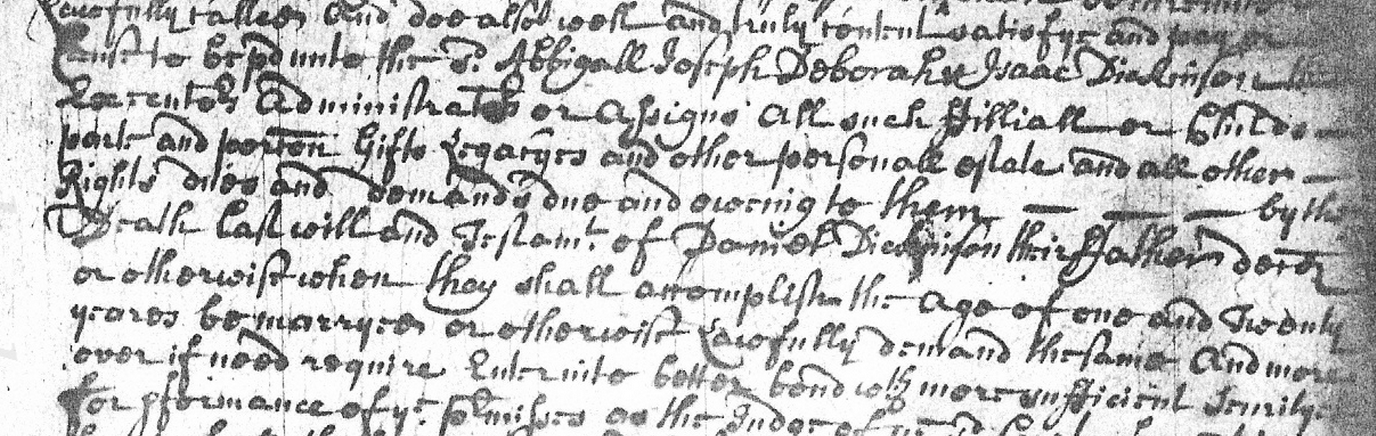 Lawfully called And doe also well and truly content satisfye and pay or
cause to be pd unto the sd. Abbigall Joseph Deborah & Isaac Dickinson their
Executors Administrators or Assigns All such ffilliall or Childs
part and porcon Gifts Legacyes and other personall estate and all other
Rights dues and demands due and oweing to them by the
Death last will and Testamt. of Daniel Dickinson their ffather decd
or otherwise when they shall accomplish the Age of one and Twenty
yeares be marryed or otherwise Lawfully demand the same And more
over if need require Enter into better bond with more sufficient Security
for pformance of ye. pmisses as the Judge of